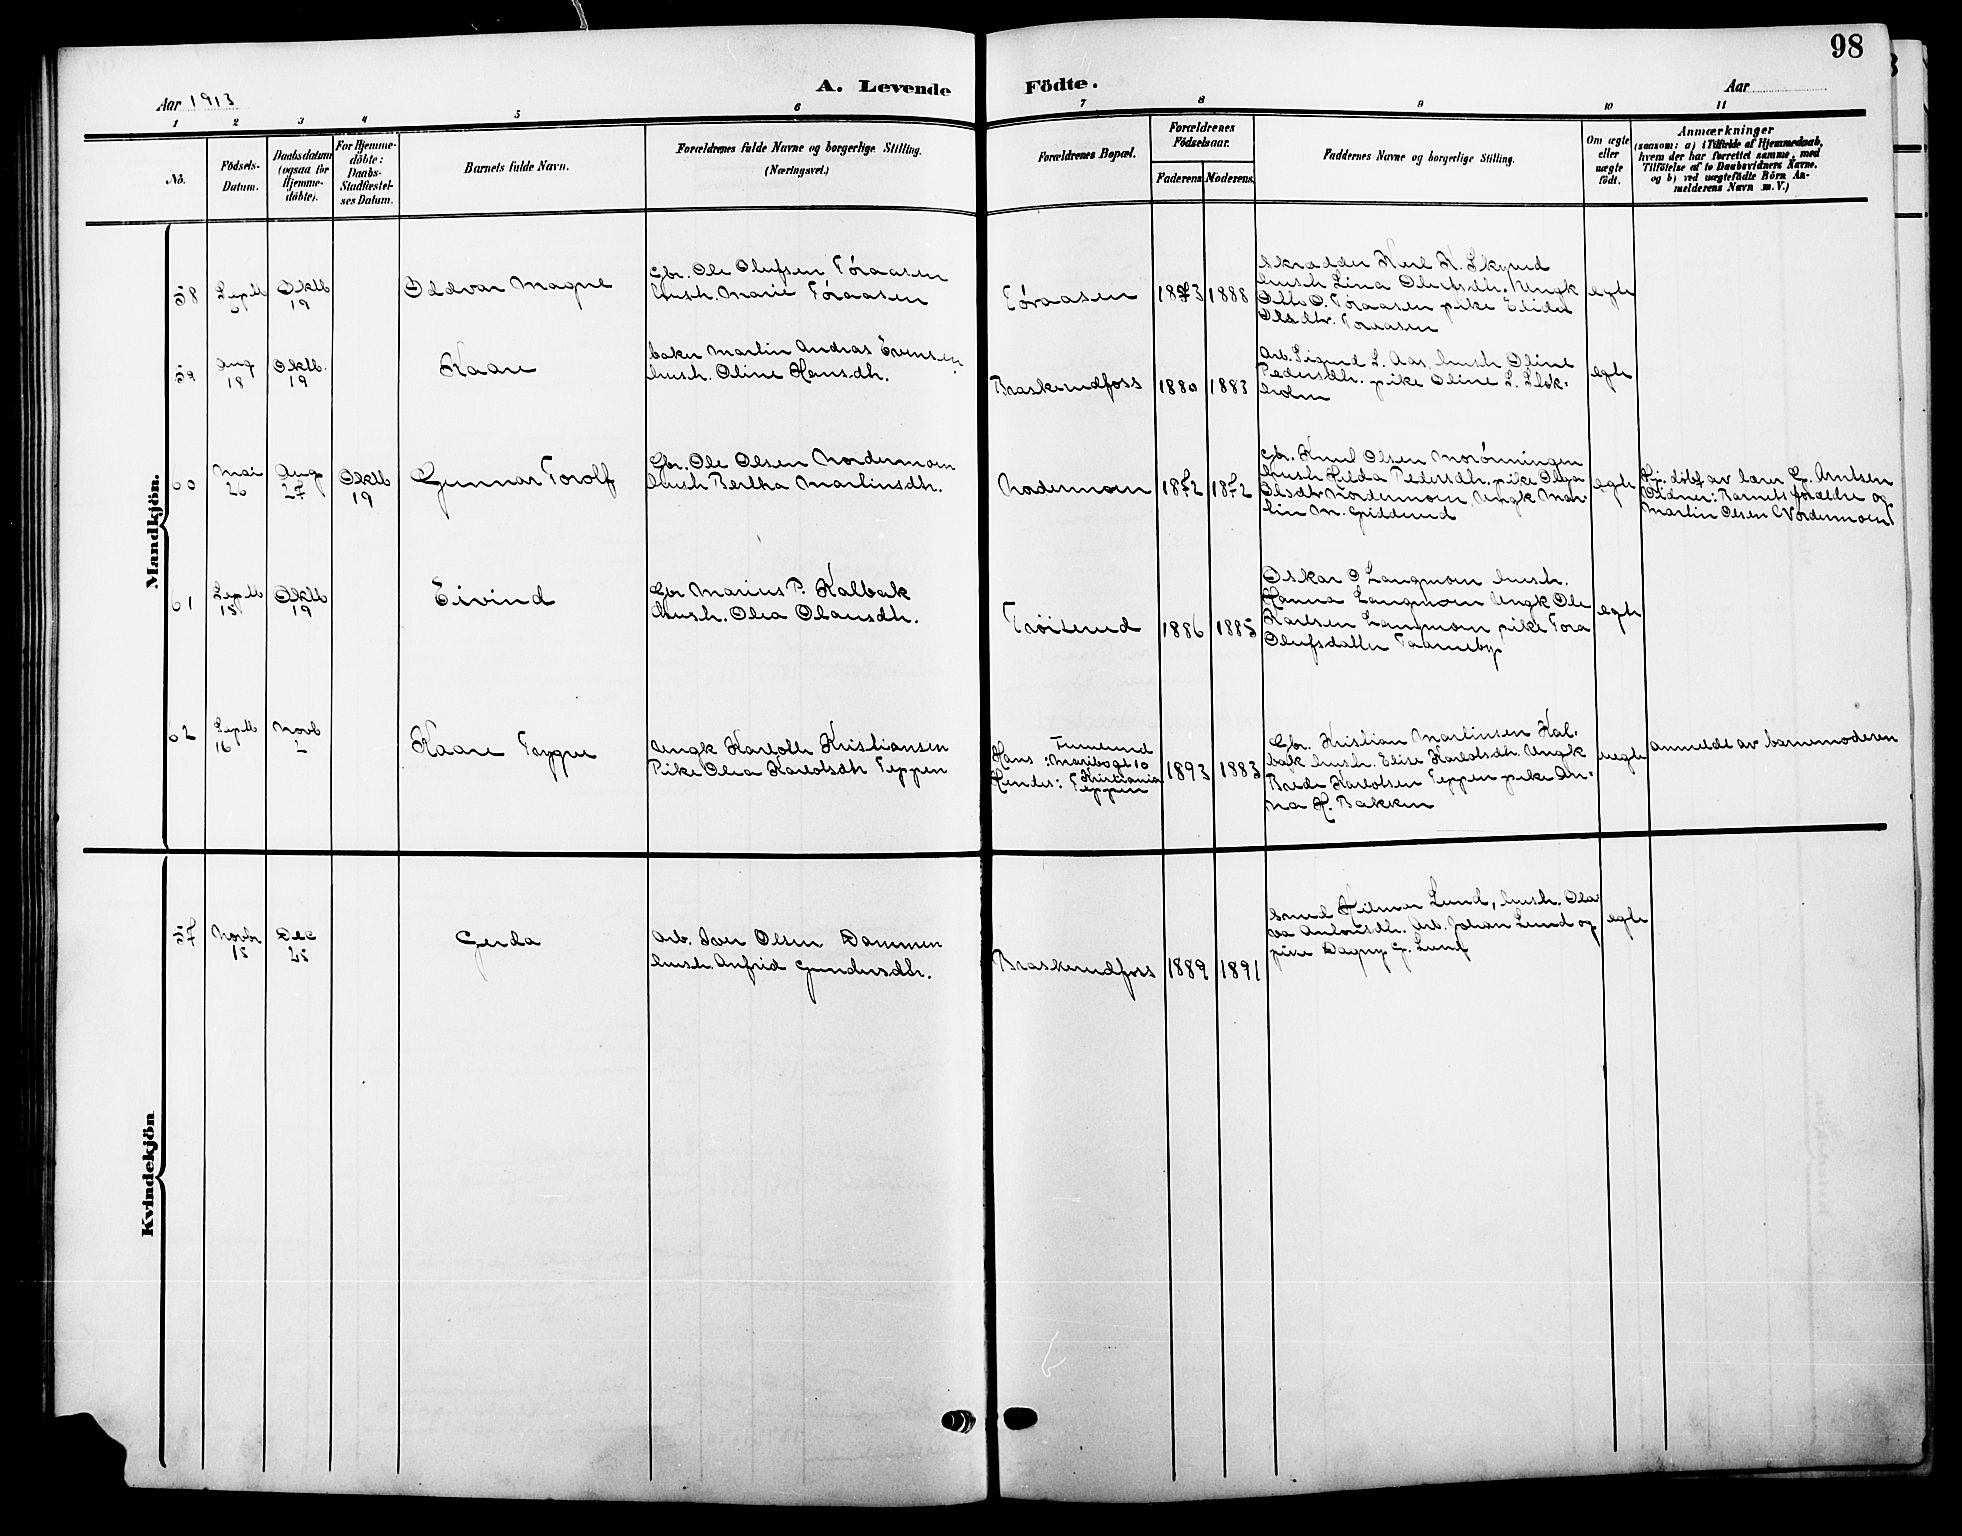 98
A. Levende Födte.
Aar 1913
Aar
1 2 3 4 5 6 7 8 9 10 11
No.
Födsels-
Datum.
Daabsdatum
(ogsaa for
Hjemme-
döbte).
For Hjemme-
döbte:
Daabs-
Stadfæstel-
ses Datum.
Barnets fulde Navn.
Forældrenes fulde Navne og borgerlige Stilling.
(Næringsvei.)
Forældrenes Bopæl.
Forældrenes
Födselsaar.
Faderens
Moderens.
Faddernes Navne og borgerlige Stilling.
Om ægte
eller
uægte
födt.
Anmærkninger
(saasom: a) i Tilfælde af Hjemmedaab,
hvem der har forrettet samme, med
Tilföielse af to Daabsvidners Navne.
og b) ved uægtefödte Börn An-
melderens Navn m. V.)
Mandkjön.
58
Septb
Oktb
19
Oddvar Magne
Gbr. Ole Olufsen Töraasen
hush. Marie Töraasen
Töraasen
1873
1888
Skrædder Karl K. Skyrud
hush Lina Olufsdh. Ungk
Otto O. Töraasen pike Elida
Olsdtr. Toraasen
egte
59
Aug
18
Oktb.
19
Kaare
baker Martin Andras Evensen
hush. Oline Hansdh.
Braskerudfoss
1880
1883
Arb. Sigurd L. Aas, hush Oline
Pedersdh. pike Oline L.
egte
60
Mai
26
Aug
27
Oktb
19
Gunnar Torolf
Gbr. Ole Olsen Nordermoen
hush Bertha Martinsdh.
Nodermoen
1872
1872
Gbr. Knut Olsen Morönningen
hush Hilda Pedersdh. pike Olga
Olsdtr Nordermoen, Ungk Mar-
tin M. Gidderud
egte
Hj. döbt av lærer G. Arntsen
Vidner: Barnets forældre og
Martin Olsen Nordermoen
61
Septb
15
Oktb
19
Eivind
Gbr Marius P. Kalbak
hush. Olea Olausdh.
Tröiterud
1886
1885
Oskar O Langmoen hush.
Hanna Langmoen Ungk Ole
Karlsen Langmoen pike Tora
Olufsdatter Taarneby
egte
62
Septb
16
Novb
2
Kaare Trygve
Ungk Karlotte Kristiansen
Pike Olea Karlotsdh Teppen
Hans: Maribogt 10
Kristiania
Hendes: Teppen
1893
1883
Gbr. Kristian Martinsen Kal-
bak hush. Elise Karlotsdh. Ungk
Brede Karlotsen Teppen pike An-
na H. Bakken
uegte
anmeldt av barnemoderen
Kvindekjön
57
Novbr
15
Dec
25
Gerda
Arb. Iver Olsen Dammen
hush. Anfrid Gundersdh.
Braskerudfoss
1889
1891
Smed Hilmar Lund, hush. Ola-
va Antonsdh. Arb. Johan Lund og
pike Dagny G. Lund
egte